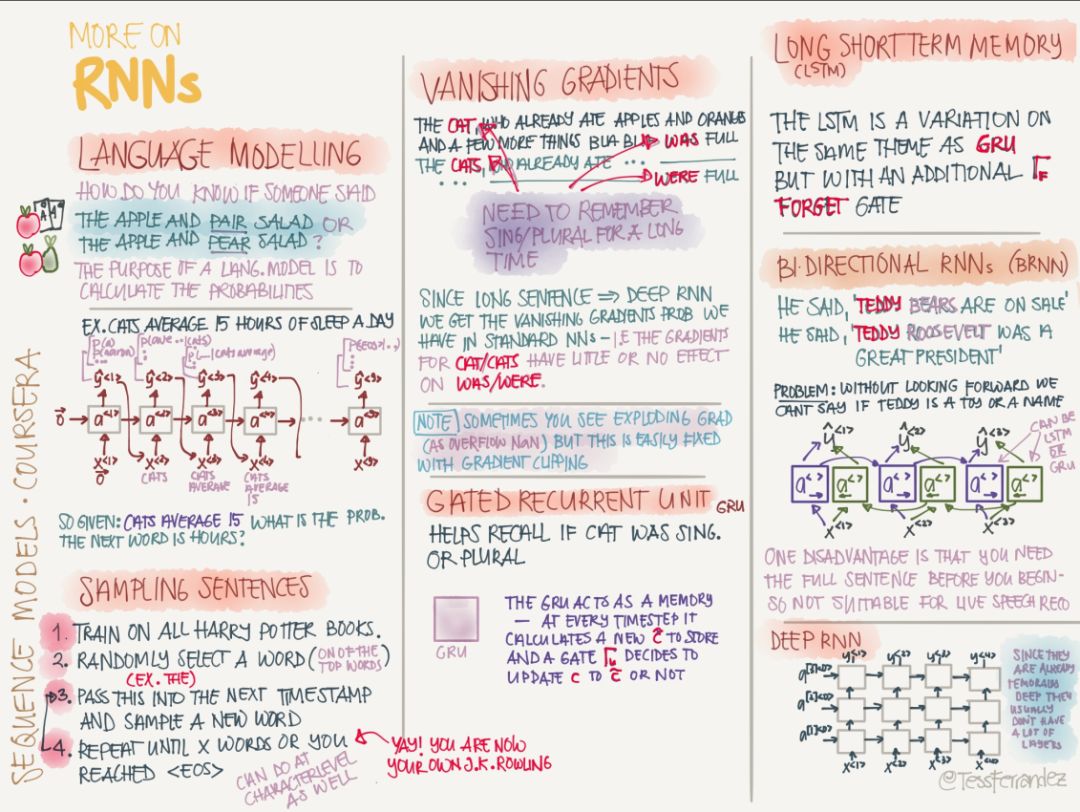 MORE ON
RNNs
LANGUAGE MODELLING
HOW DO YOU KNOW IF SOMEONE SAID
THE APPLE AND PAIR SALAD OR
THE APPLE AND PEAR SALAD?
THE PURPOSE OF A LANG. MODEL IS TO
CALCULATE THE PROBABILITIES
EX. CATS AVERAGE 15 HOURS OF SLEEP A DAY
P(a) P(aaron) P(ave..|cats) P(...|cats average) P(<EOS>|...)
ŷ<1> ŷ<2> ŷ<3> ŷ<4> ŷ<9>
0 a<1> a<2> a<3> a<4> ... a<9>
x<1> x<2> x<3> x<4> x<9>
0 CATS CATS AVERAGE CATS AVERAGE 15
SO GIVEN: CATS AVERAGE 15 WHAT IS THE PROB.
THE NEXT WORD IS HOURS?
SAMPLING SENTENCES
1. TRAIN ON ALL HARRY POTTER BOOKS.
2. RANDOMLY SELECT A WORD (ON OF THE TOP WORDS)
(EX. THE)
3. PASS THIS INTO THE NEXT TIMESTAMP
AND SAMPLE A NEW WORD
4. REPEAT UNTIL X WORDS OR YOU
REACHED <EOS>
CAN DO AT
CHARACTERLEVEL
AS WELL
YAY! YOU ARE NOW
YOUR OWN J.K. ROWLING
SEQUENCE MODELS · COURSERA
VANISHING GRADIENTS
THE CAT, WHO ALREADY ATE APPLES AND ORANGES
AND A FEW MORE THINGS BLA BLA WAS FULL
THE CATS, WHO ALREADY ATE ...
... WERE FULL
NEED TO REMEMBER
SING/PLURAL FOR A LONG
TIME
SINCE LONG SENTENCE ⇒ DEEP RNN
WE GET THE VANISHING GRADIENTS PROB WE
HAVE IN STANDARD NNs - I.E THE GRADIENTS
FOR CAT/CATS HAVE LITTLE OR NO EFFECT
ON WAS/WERE.
NOTE SOMETIMES YOU SEE EXPLODING GRAD
(AS OVERFLOW NaN) BUT THIS IS EASILY FIXED
WITH GRADIENT CLIPPING
GATED RECURRENT UNIT GRU
HELPS RECALL IF CAT WAS SING.
OR PLURAL
GRU
THE GRU ACTS AS A MEMORY
- AT EVERY TIMESTEP IT
CALCULATES A NEW c̃ TO STORE
AND A GATE Γu DECIDES TO
UPDATE c TO c̃ OR NOT
LONG SHORT TERM MEMORY
(LSTM)
THE LSTM IS A VARIATION ON
THE SAME THEME AS GRU
BUT WITH AN ADDITIONAL ΓF
FORGET GATE
BI-DIRECTIONAL RNNs (BRNN)
HE SAID, 'TEDDY BEARS ARE ON SALE'
HE SAID, 'TEDDY ROOSEVELT WAS A
GREAT PRESIDENT'
PROBLEM: WITHOUT LOOKING FORWARD WE
CANT SAY IF TEDDY IS A TOY OR A NAME
ŷ<1> ŷ<2> ŷ<3>
CAN BE
LSTM
OR
GRU
a<> a<> a<> a<> a<> a<>
x<1> x<2> x<3>
ONE DISADVANTAGE IS THAT YOU NEED
THE FULL SENTENCE BEFORE YOU BEGIN-
SO NOT SUITABLE FOR LIVE SPEECH RECO
DEEP RNN
y<1> y<2> y<3> y<4>
a[3]<0>
a[2]<0>
a[1]<0>
x<1> x<2> x<3> x<4>
SINCE THEY
ARE ALREADY
TEMPORALLY
DEEP THEY
USUALLY
DON'T HAVE
A LOT OF
LAYERS
@TessFerrandez